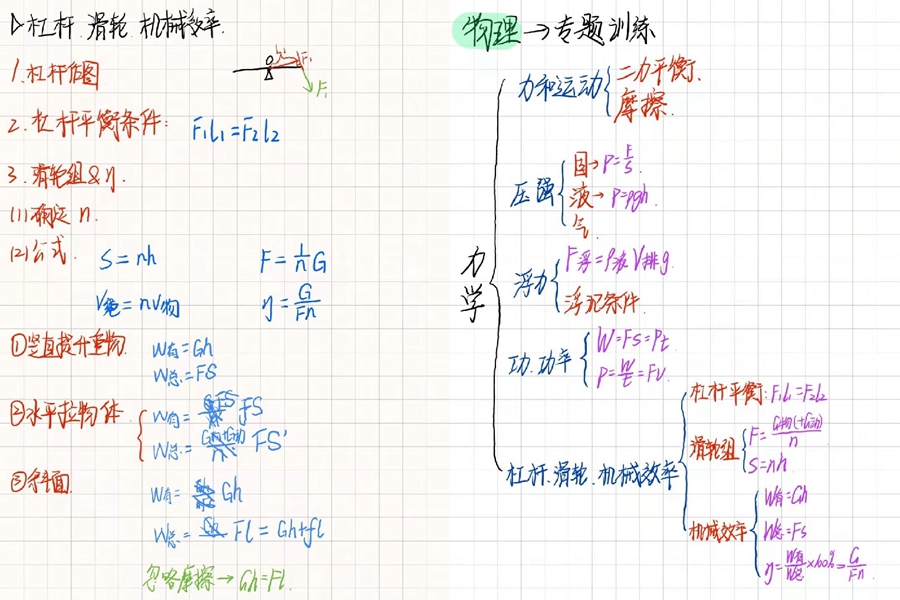 ▷杠杆.滑轮.机械效率.
1.杠杆作图
O
F₁
2.杠杆平衡条件: F₁l₁=F₂l₂
3.滑轮组&η.
(1)确定n.
(2)公式.
S=nh F=1/n G
V绳=nV物 η=G/Fn
①竖直提升重物. W有=Gh
W总=FS
②水平拉物体. W有= fS
W总= FS'
③斜面. W有= Gh
W总= Fl=Gh+fl
忽略摩擦→Gh=Fl
物理→专题训练
力学
力和运动
二力平衡.
摩擦.
压强
固→P=F/S.
液→P=ρgh.
气.
浮力
F浮=ρ液V排g.
浮沉条件
功.功率
W=FS=Pt.
P=W/t=Fv.
杠杆.滑轮.机械效率
杠杆平衡:F₁l₁=F₂l₂
滑轮组
F=G物(+G动)/n
S=nh
机械效率
W有=Gh
W总=Fs
η=W有/W总×100%=G/Fn